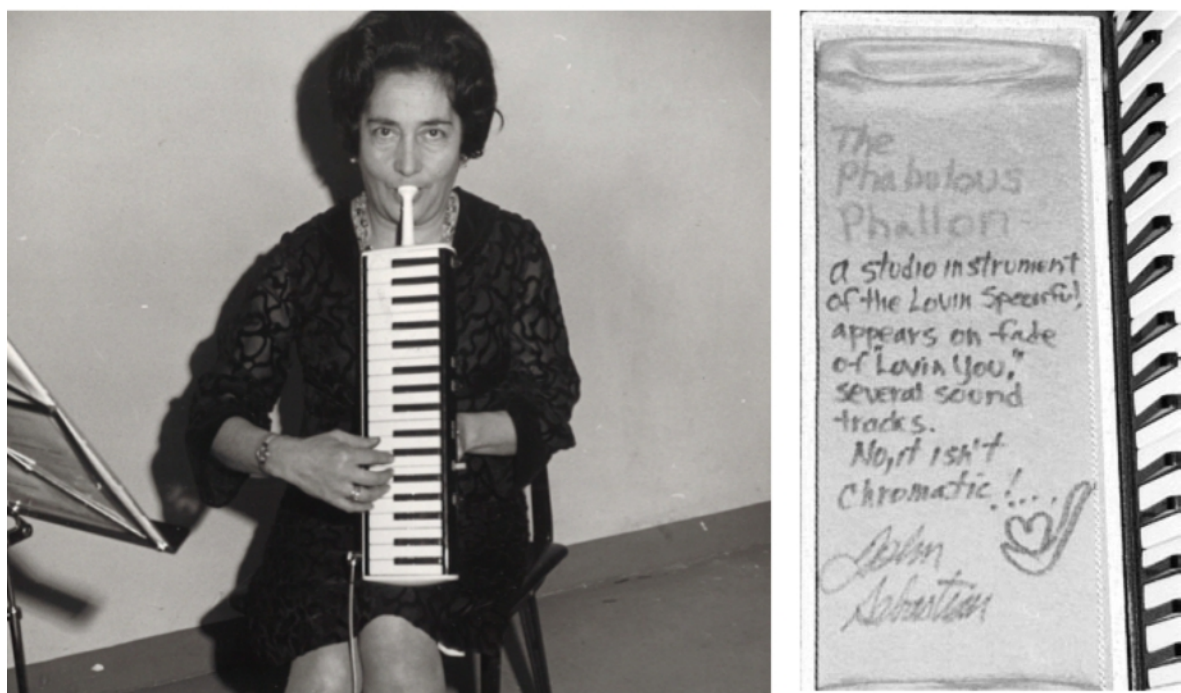 The
Phabulous
Phallon
a studio instrument
of the Lovin Spoonful,
appears on fade
of "Lovin You,"
several sound
tracks.
No, it isn't
chromatic!...
John
Sebastian